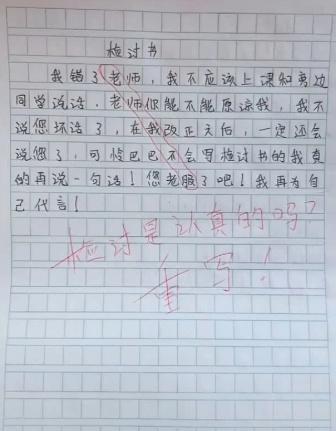 检讨书
我错了老师，我不应该上课和旁边
同学说话，老师你能不能原谅我，我不
说您坏话了，在我改正天后，一定还会
说您了，可怜巴巴不会写检讨书的我真
的再说一句话！您老服了吧！我再为自
己代言！
检讨是认真的吗？
重写！